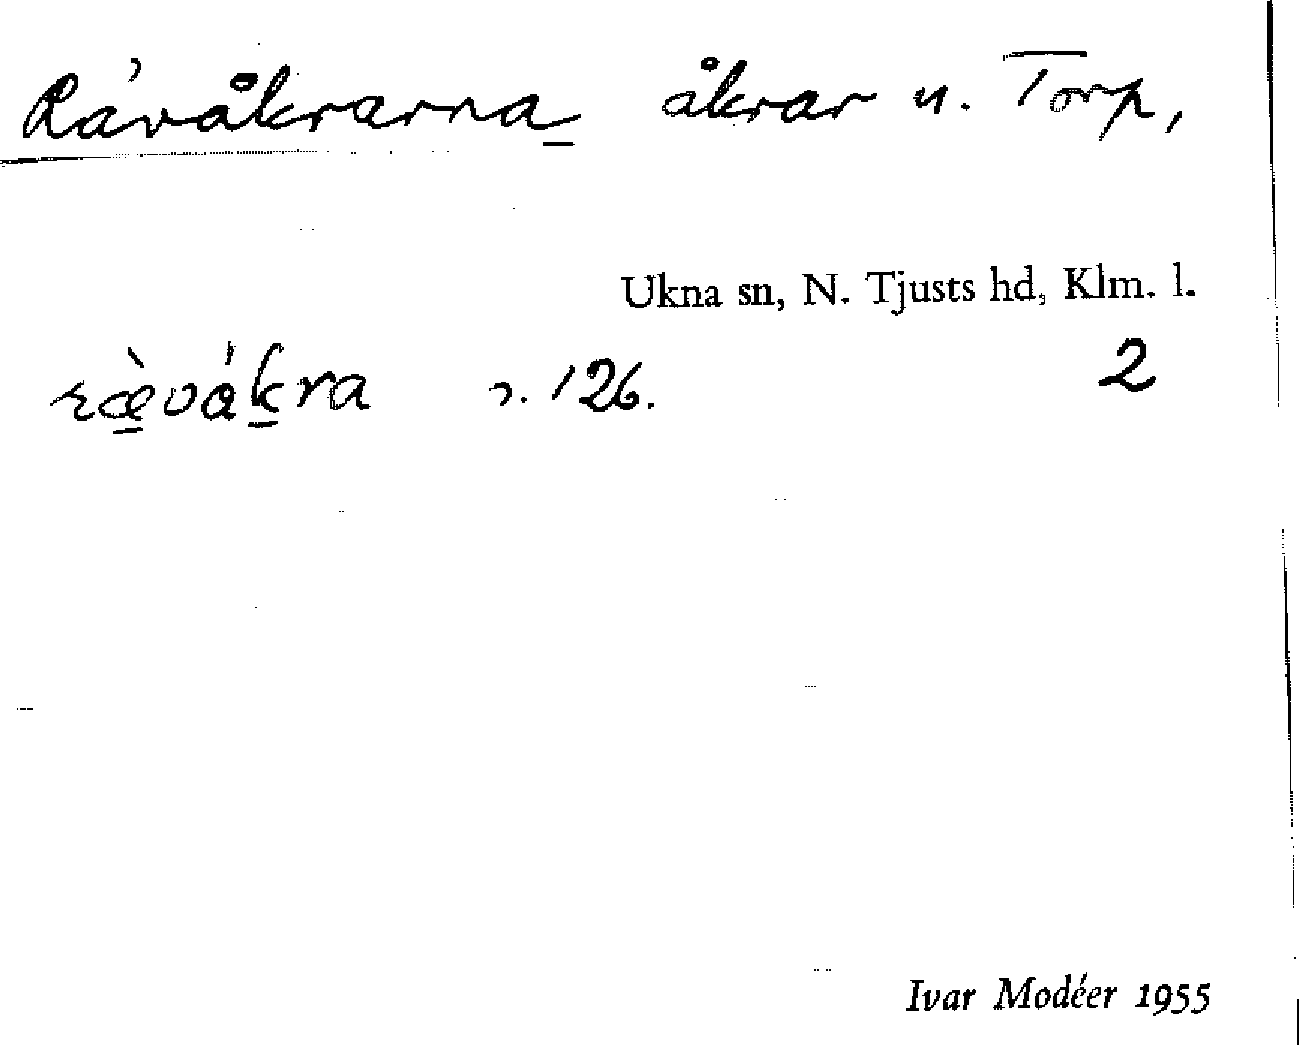 Rävåkrarna åkrar u. Torp,
Ukna sn, N. Tjusts hd, Klm. l.
2
ræ̀vákra n. 126.
Ivar Modéer 1955